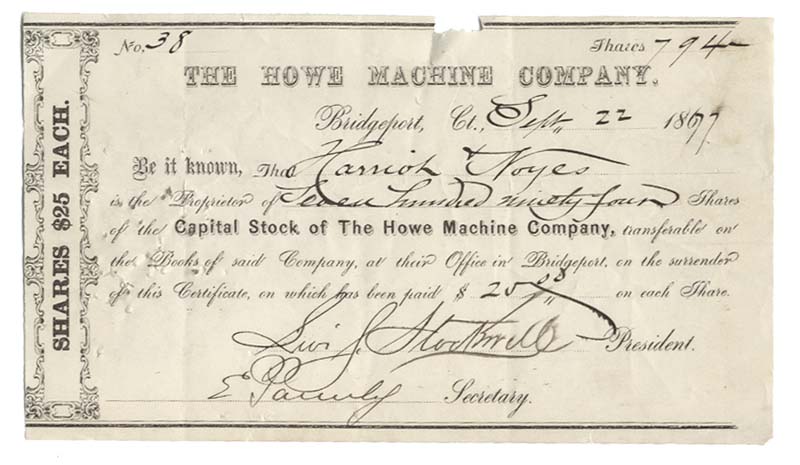 No. 38 Shares 794
THE HOWE MACHINE COMPANY.
Bridgeport, Ct., Sept. 22 1867
Be it known, That Harriot Noyes
is the Proprietor of Seven hundred ninety four Shares
of the Capital Stock of The Howe Machine Company, transferable on
the Books of said Company, at their Office in Bridgeport, on the surrender
of this Certificate, on which has been paid $ 20 on each Share.
Levi S. Stockwell President.
E Parmly Secretary.
SHARES $25 EACH.